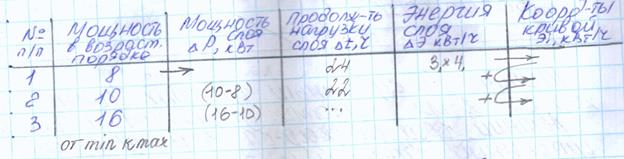 № п/п | Мощность в возраст. порядке | Мощность слоя ΔР, кВт | Продолж-ть нагрузки слоя Δt, ч | Энергия слоя ΔЭ кВт/ч | Коорд-ты кривой Эi, кВт/ч
1 | 8 | → | 24 | 3 × 4 |
2 | 10 | (10-8) | 22 | | +
3 | 16 | (16-10) | ... | | +
от min к max